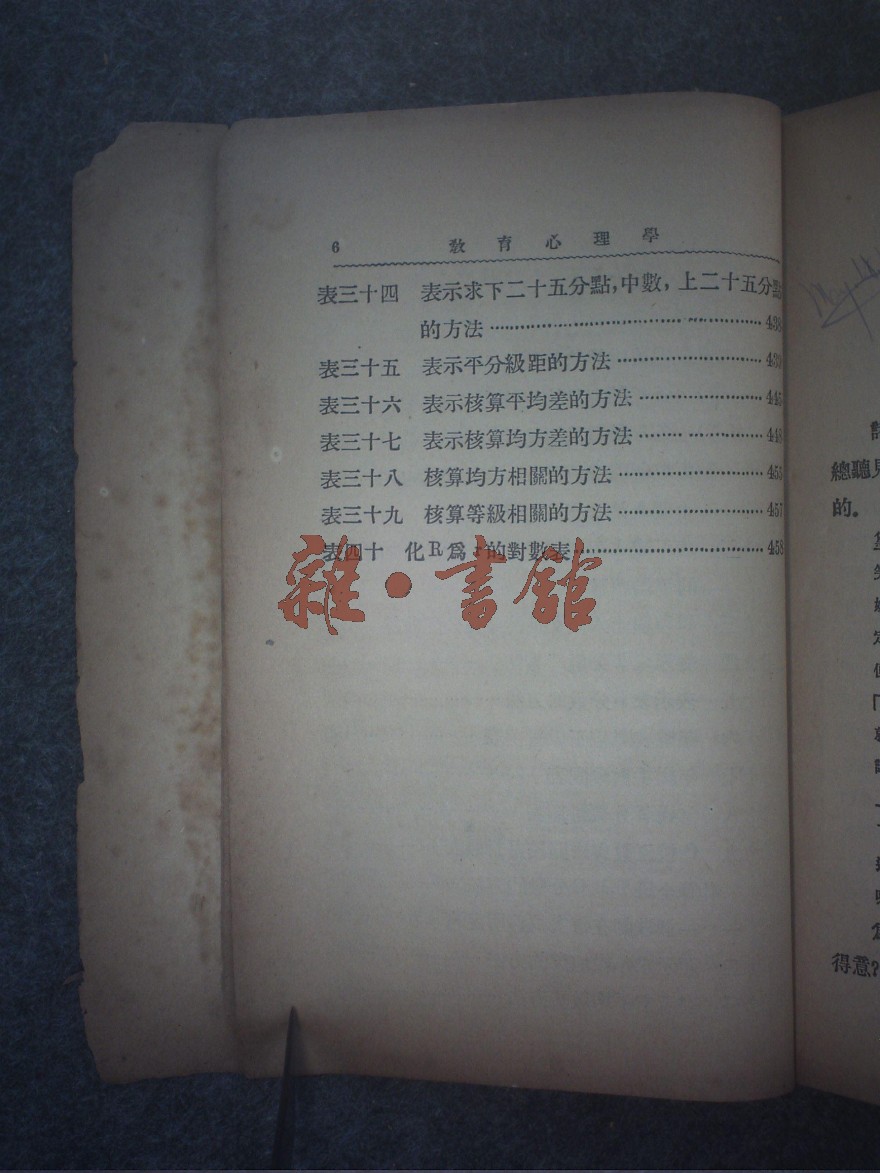 6 教育心理學
表三十四 表示求下二十五分點,中數,上二十五分點
的方法……438
表三十五 表示平分級距的方法……439
表三十六 表示核算平均差的方法……445
表三十七 表示核算均方差的方法……448
表三十八 核算均方相關的方法……455
表三十九 核算等級相關的方法……457
表四十 化R爲r的對數表……458
雜·書館
總聽見
的。
得意?